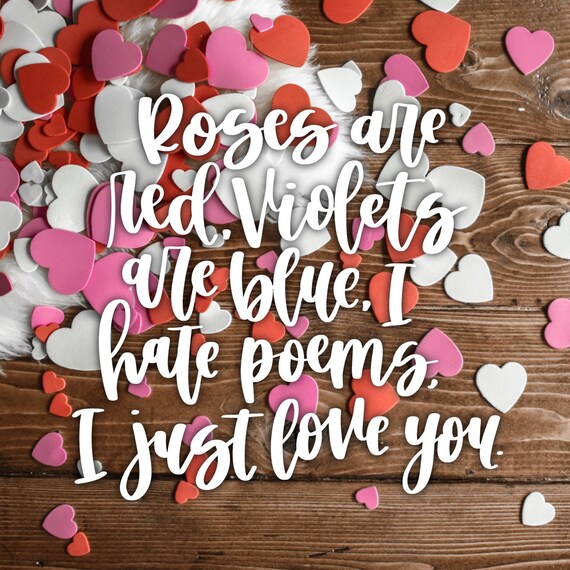 Roses are
red, Violets
are blue, I
hate poems,
I just love you.